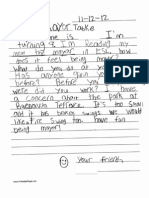 11-12-12
Mayor Tatke
name is I'm
turning 8 I'm Reading my
how the mayor in ESL. how
does it feel being mayor?
What do you do as a mayor?
Has anyone given you
before? Before you were
were did you work? I have
a concern about the park at
Buenavista Terrace. It's too small
and it has baby swings we would
like Fire Swing too. have fun
being mayor!
Your friend,